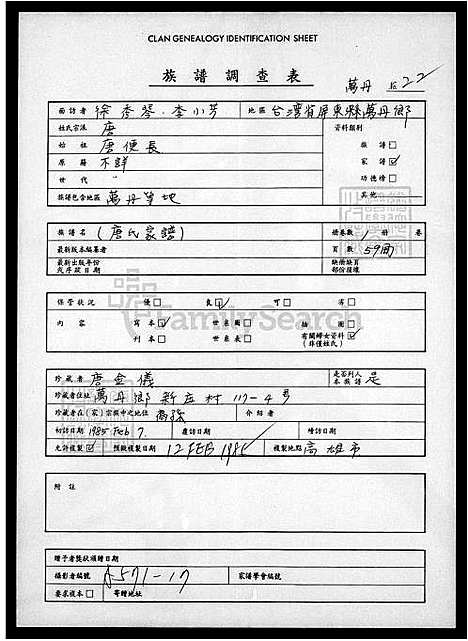 CLAN GENEALOGY IDENTIFICATION SHEET
族譜調查表
萬丹 22
面訪者 徐秀琴.李小芳 地區 台灣省屏東縣萬丹鄉
姓氏宗派 唐 資料類別
始祖 唐便長 族譜□
原籍 不詳 家譜☑
世代 功德榜□
族譜包含地區 萬丹等地 其他
族譜名 (唐氏家譜) 捲卷數 1 冊 卷
最新版本編纂者 頁數 59面
最新出版年份或序跋日期 缺殘缺頁部份描繪
保管狀況 優□ 良☑ 可□ 劣□
內容 寫本☑ 世系圖□ 插圖□
刊本□ 世系表□ 有關婦女資料(非僅姓氏)☑
FamilySearch
珍藏者 唐金儀 是否列入本族譜 是
珍藏者住址 萬丹鄉新庄村117-4號
珍藏者在(家)宗族中之地位 裔孫 介紹者
初訪日期 1985 Feb 7. 覆訪日期 轉訪日期
允許複製☑ 預擬複製日期 12 FEB 1985 複製地點 高雄市
附註
贈予者獎狀頒贈日期
攝影者編號 A571-17 家譜學會編號
要求複本□ 寄贈地址